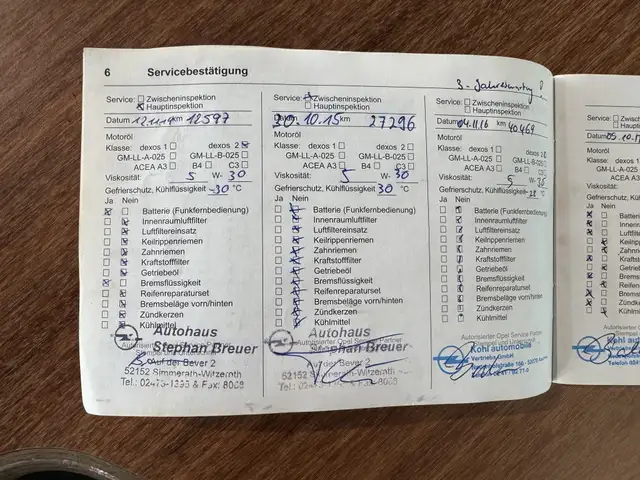 6 Servicebestätigung
Service: Zwischeninspektion
Hauptinspektion
Datum km 12597
Motoröl
Klasse: dexos 1 dexos 2
GM-LL-A-025 GM-LL-B-025
ACEA A3 B4 C3
Viskosität: 5 W- 30
Gefrierschutz, Kühlflüssigkeit -30 °C
Ja Nein
Batterie (Funkfernbedienung)
Innenraumluftfilter
Luftfiltereinsatz
Keilrippenriemen
Zahnriemen
Kraftstofffilter
Getriebeöl
Bremsflüssigkeit
Reifenreparaturset
Bremsbeläge vorn/hinten
Zündkerzen
Kühlmittel
Autohaus
Stephan Breuer
Auf der Bever 2
52152 Simmerath-Witzerath
Service: Zwischeninspektion
Hauptinspektion
Datum 30.10.15 km 27296
Motoröl
Klasse: dexos 1 dexos 2
GM-LL-A-025 GM-LL-B-025
ACEA A3 B4 C3
Viskosität: 5 W- 30
Gefrierschutz, Kühlflüssigkeit 30 °C
Ja Nein
Batterie (Funkfernbedienung)
Innenraumluftfilter
Luftfiltereinsatz
Keilrippenriemen
Zahnriemen
Kraftstofffilter
Getriebeöl
Bremsflüssigkeit
Reifenreparaturset
Bremsbeläge vorn/hinten
Zündkerzen
Kühlmittel
Autohaus
Stephan Breuer
Auf der Bever 2
52152 Simmerath-Witzerath
Service: Zwischeninspektion
Hauptinspektion
Datum 04.11.16 km 40469
Motoröl
Klasse: dexos 1 dexos 2
GM-LL-A-025 GM-LL-B-025
ACEA A3 B4 C3
Viskosität: 5 W- 30
Gefrierschutz, Kühlflüssigkeit °C
Ja Nein
Batterie (Funkfernbedienung)
Innenraumluftfilter
Luftfiltereinsatz
Keilrippenriemen
Zahnriemen
Kraftstofffilter
Getriebeöl
Bremsflüssigkeit
Reifenreparaturset
Bremsbeläge vorn/hinten
Zündkerzen
Kühlmittel
Autorisierter Opel Service Partner
Kohl automobile
Vertriebs GmbH
Service:
Datum
Motoröl
Klasse:
Viskosität:
Gefrierschutz
Ja Nein